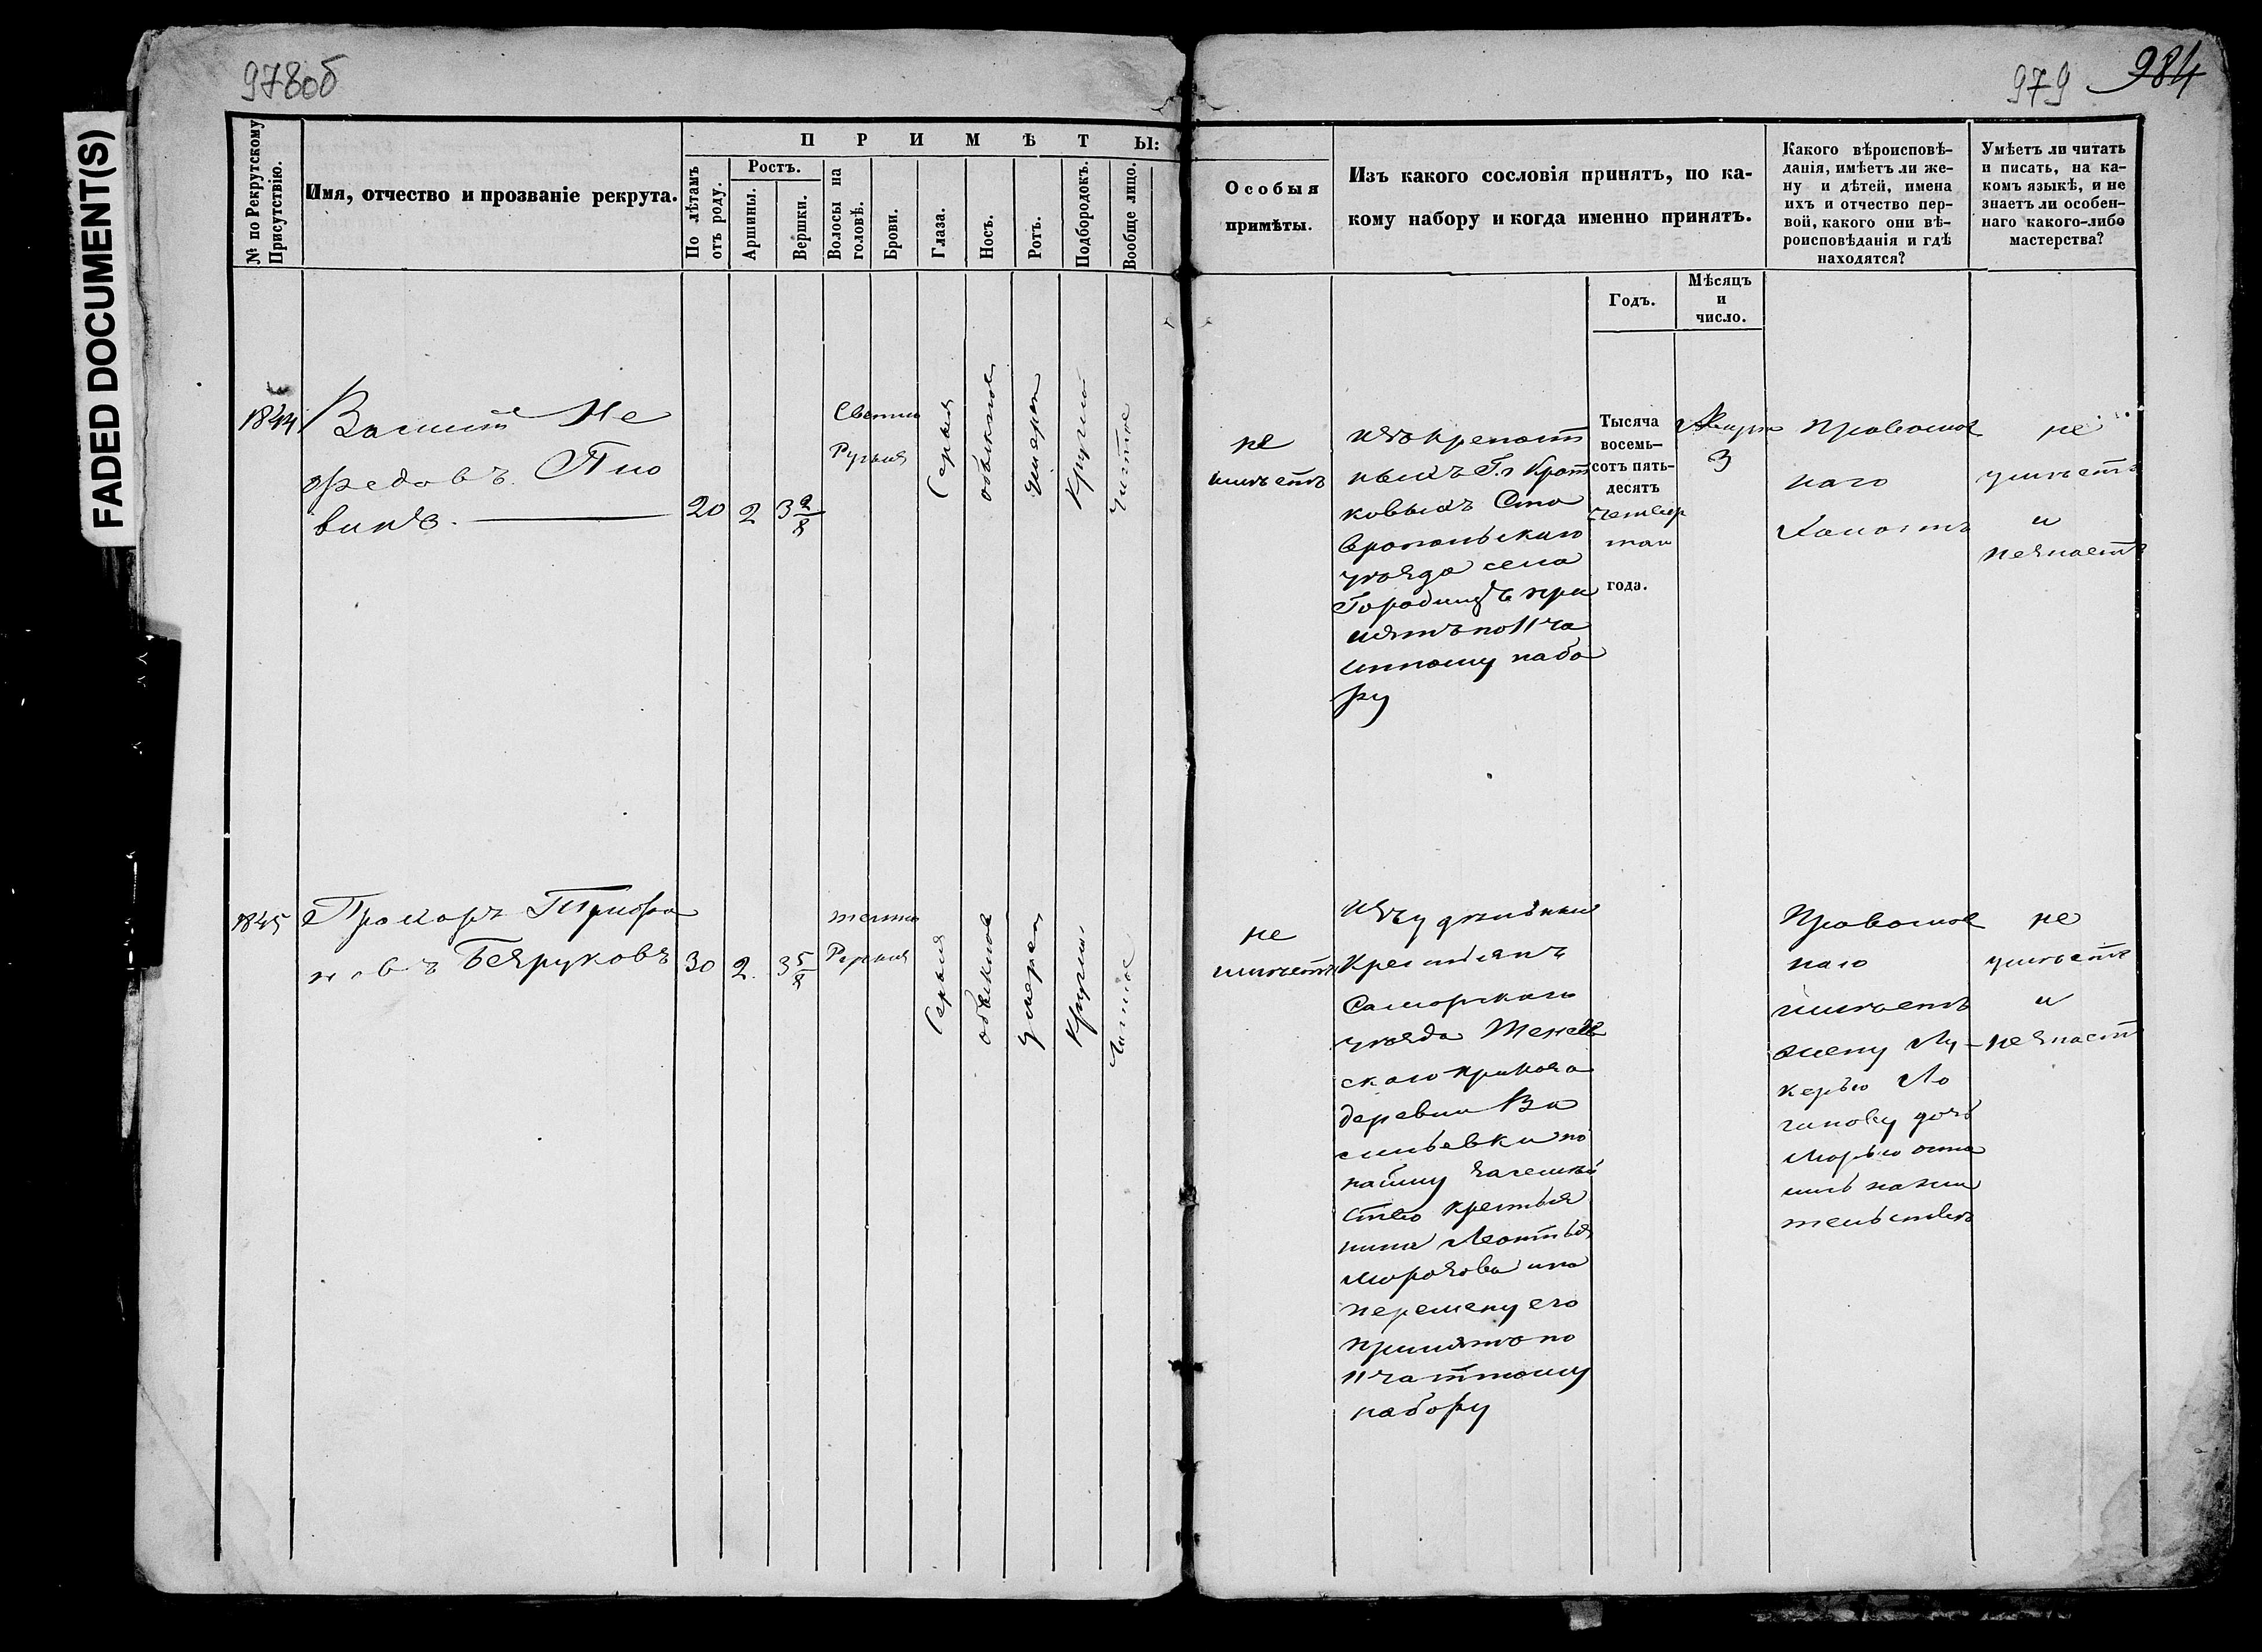 FADED DOCUMENT(S)
978об
979 984
№ по Рекрутскому
Присутствію.
Имя, отчество и прозваніе рекрута.
ПРИМѢТЫ:
По лѣтамъ
отъ роду.
Ростъ.
Аршины.
Вершки.
Волосы на
головѣ.
Брови.
Глаза.
Носъ.
Ротъ.
Подбородокъ.
Вообще лицо.
Особыя
примѣты.
Изъ какого сословія принятъ, по ка-
кому набору и когда именно принятъ.
Годъ.
Мѣсяцъ
и
число.
Какого вѣроисповѣ-
данія, имѣетъ ли же-
ну и дѣтей, имена
ихъ и отчество пер-
вой, какого они вѣ-
роисповѣданія и гдѣ
находятся?
Умѣетъ ли читать
и писать, на ка-
комъ языкѣ, и не
знаетъ ли особен-
наго какого-либо
мастерства?
1844
Василій Не
федовъ
20
2
3 2/8
Светло
Русыя
Серыя
обыкнов
умерен
Круглой
чистое
не
имѣетъ
изъ крепост
ныхъ Г.г Крот
ковыхъ Ста
вропольскаго
уѣзда села
Городищъ при
нятъ по 11 ча
стному набо
ру
Тысяча
восемь-
сотъ пять-
десятъ
четвер
таго
года.
Марта
3
Православ
наго
Холостъ
не
умѣетъ
и
незнаетъ
1845
Прохоръ Трифо
новъ Безруковъ
30
2
3 5/8
темно
Русыя
Серыя
обыкнов
умерен
Круглы
Чистое
не
имѣетъ
изъ удѣльныхъ
Крестьянъ
Самарскаго
уѣзда
скаго приказа
деревни Ва
сильевки по
найму
ство крестья
нина Леонтья
Морозова и на
перемену его
принятъ по
11 частному
набору
Православ
наго
имѣетъ
жену Лу
керью Ло
гинову дочь
Марью оста
лись на жи
тельстве
не
умѣетъ
и
незнаетъ